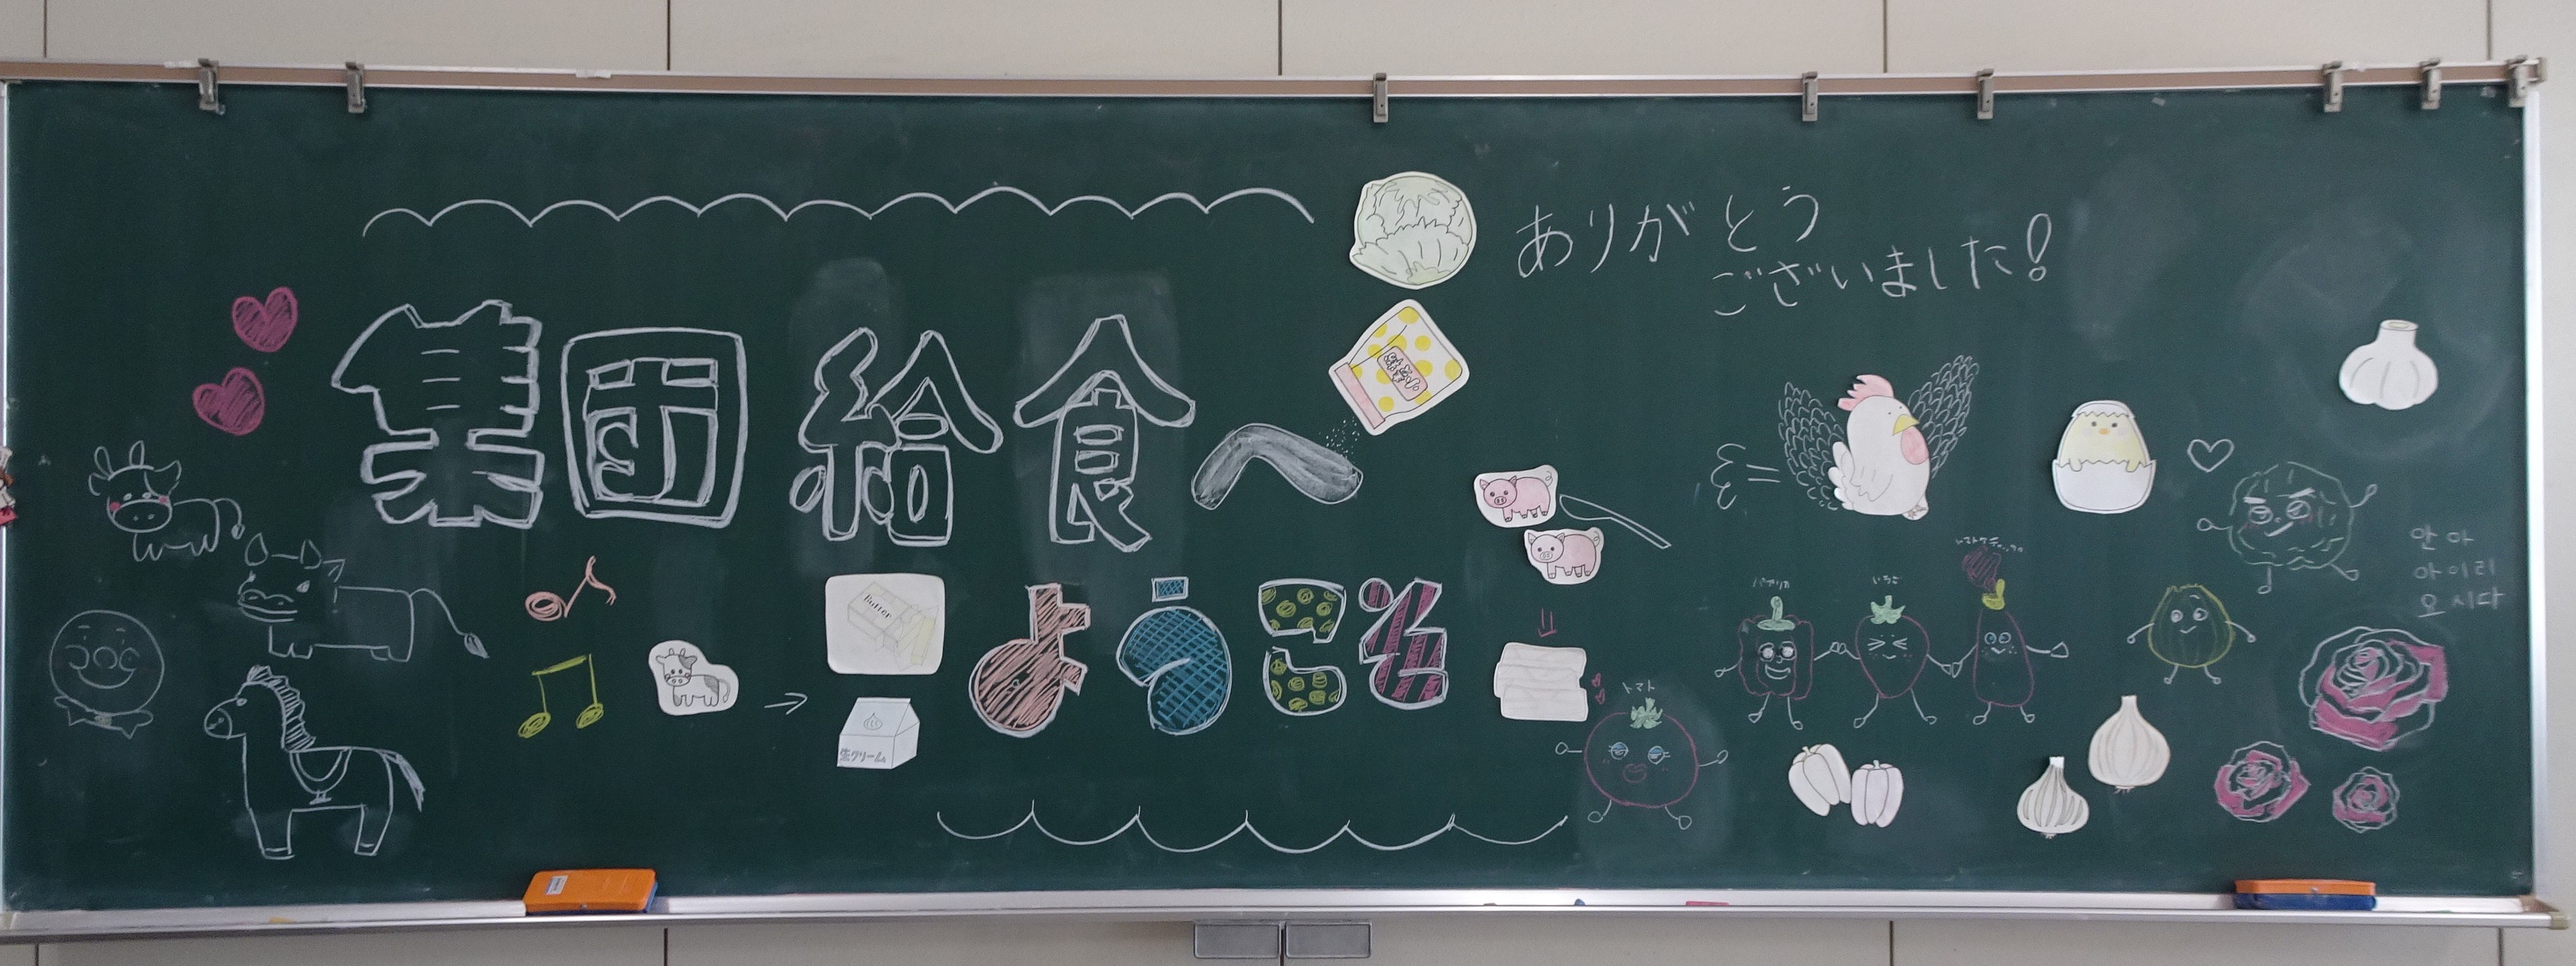 ありがとう
ございました!
集団給食へ
ようこそ
Butter
生クリーム
トマト
パプリカ
いちご
안아
아이리
요시다